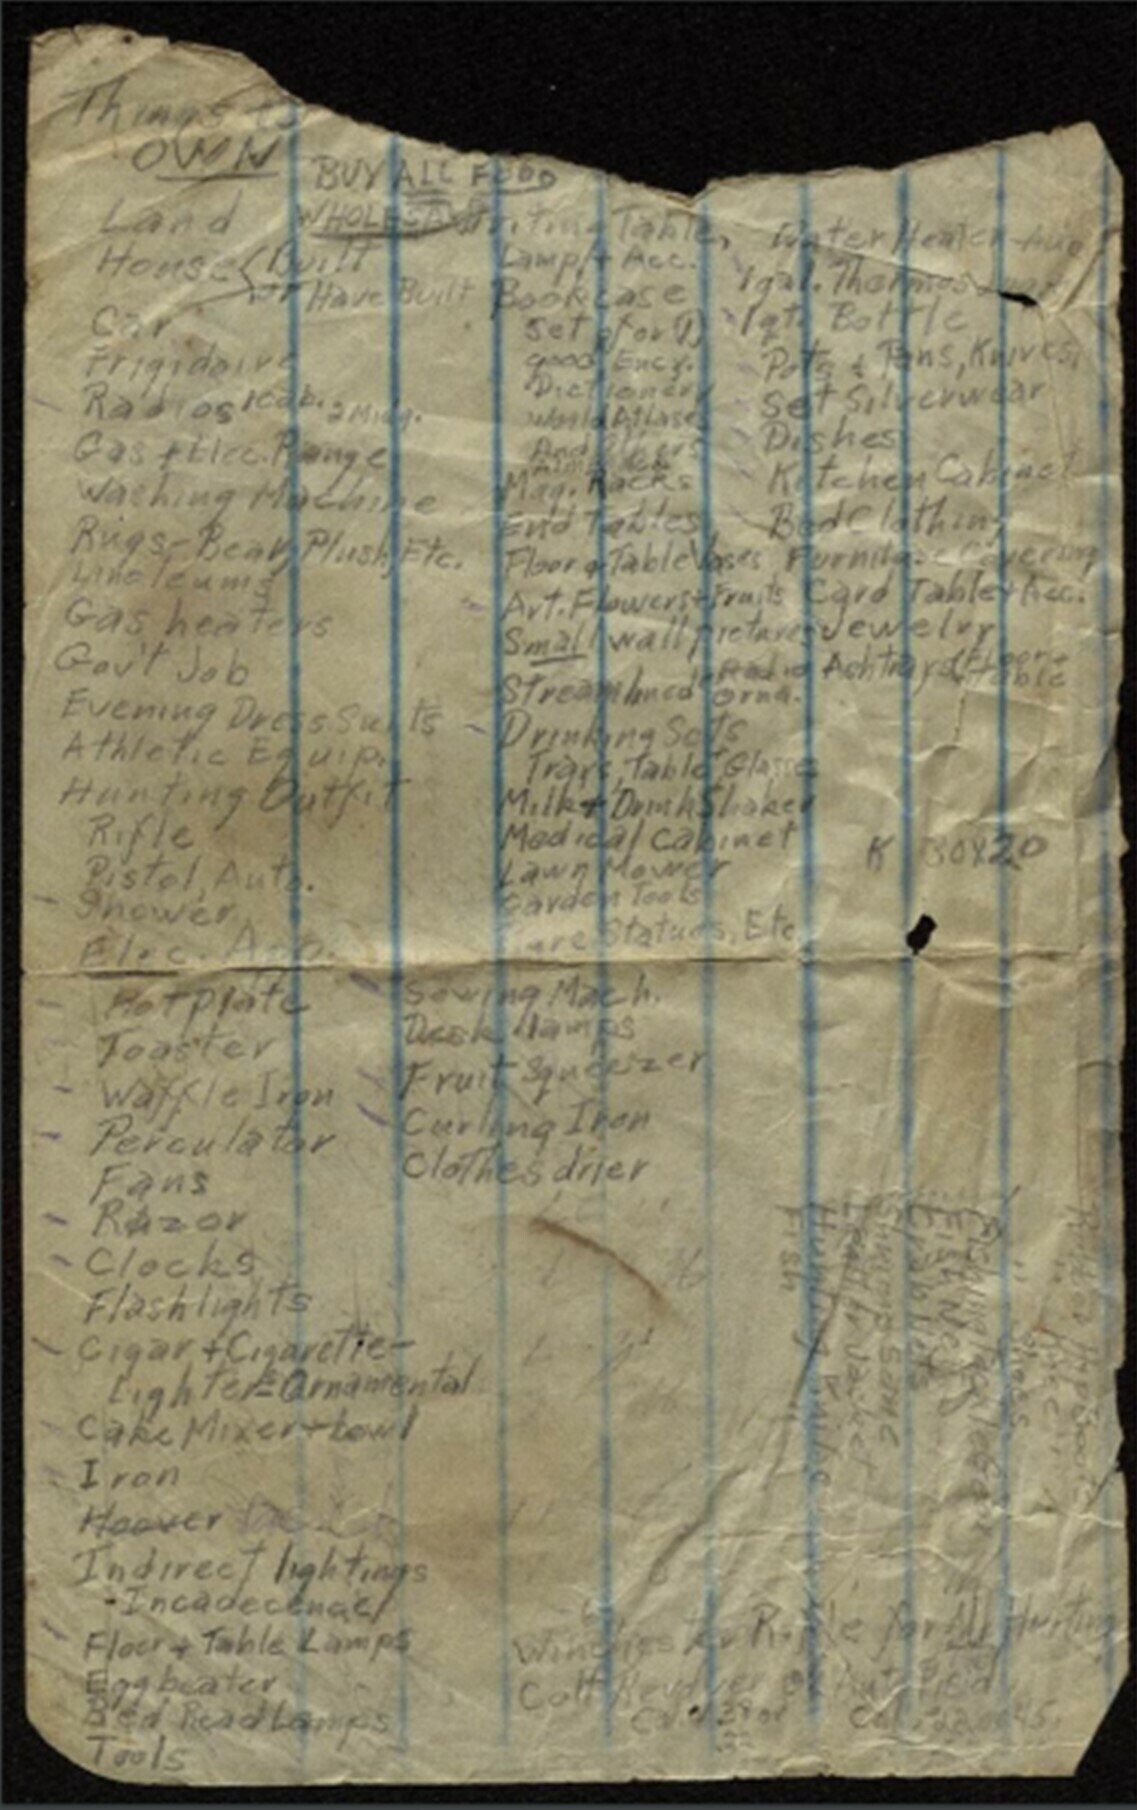 Things to
OWN
BUY ALL FOOD
WHOLESALE
Land
House Built
or Have Built
Car
Frigidaire
Radios 1 Cab. 2 Midg.
Gas & Elec. Range
Washing Machine
Rugs - Bear, Plush, Etc.
Linoleums
Gas heaters
Gov't Job
Evening Dress Suits
Athletic Equip.
Hunting Outfit
Rifle
Pistol, Auto.
Shower
Elec. App.
Hotplate
Toaster
Waffle Iron
Perculator
Fans
Razor
Clocks
Flashlights
Cigar + Cigarette -
Lighters Ornamental
Cake Mixer + bowl
Iron
Hoover
Indirect lightings
Incadecence
Floor + Table Lamps
Eggbeater
Bed Read Lamps
Tools
Writing Table,
Lamp + Acc.
Bookcase
Set of or (1)
good Ency.
Dictionary
World Atlases
And Others
Mag. Racks
End Tables
Floor & Table Vases
Art. Flowers + Fruits
Small wall pictures
Streamlined Radio
Orna.
Drinking Sets
Trays, Table, Glasses
Milk + Drink Shaker
Medical Cabinet
Lawn Mower
Garden Tools
Statues, Etc
Sewing Mach.
Desk Lamps
Fruit Squeezer
Curling Iron
Clothes drier
Water Heater - Aug
1 gal. Thermos
1 qt. Bottle
Pots & Pans, Knives,
Set Silverwear
Dishes
Kitchen Cabinet
Bed Clothing
Furniture Covering
Card Table + Acc.
Jewelry
Ashtrays Floor +
Table
K 30820
Rubber Hip Boots
Shoes
Fishing Tackle
Fish Nets
Crab Nets
Shrimp Seine
Leather Jacket
Hunting Knife
Fish
Winchester Rifle for All Hunting
Colt Revolver or Auto Pistol
Cal. 38 or
Cal. 22 or 45.